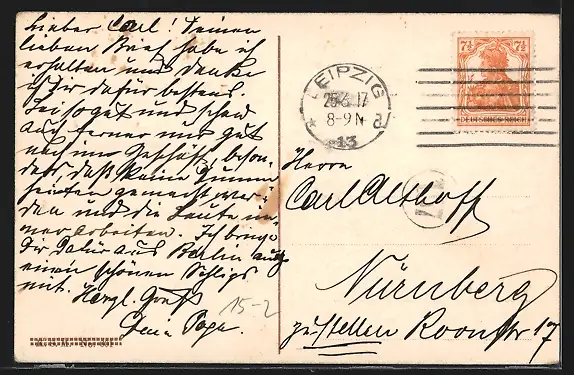 Lieber Carl! Deinen
lieben Brief habe ich
erhalten und danke
ich Dir dafür bestens.
Sei so gut und schau
auch ferner nur gut
nach im Geschäft, beson-
ders, daß keine Dumm-
heiten gemacht wer-
den und die Leute im-
mer arbeiten. Ich bringe
Dir dafür aus Berlin auch
einen schönen Schlips
mit. Herzl. Gruß
Dein Papa.
15-2
LEIPZIG
25.6.17
8-9N
* 13
7½ 7½
DEUTSCHES REICH
Herrn
Carl Althoff
Nürnberg
zustellen Roonstr 17